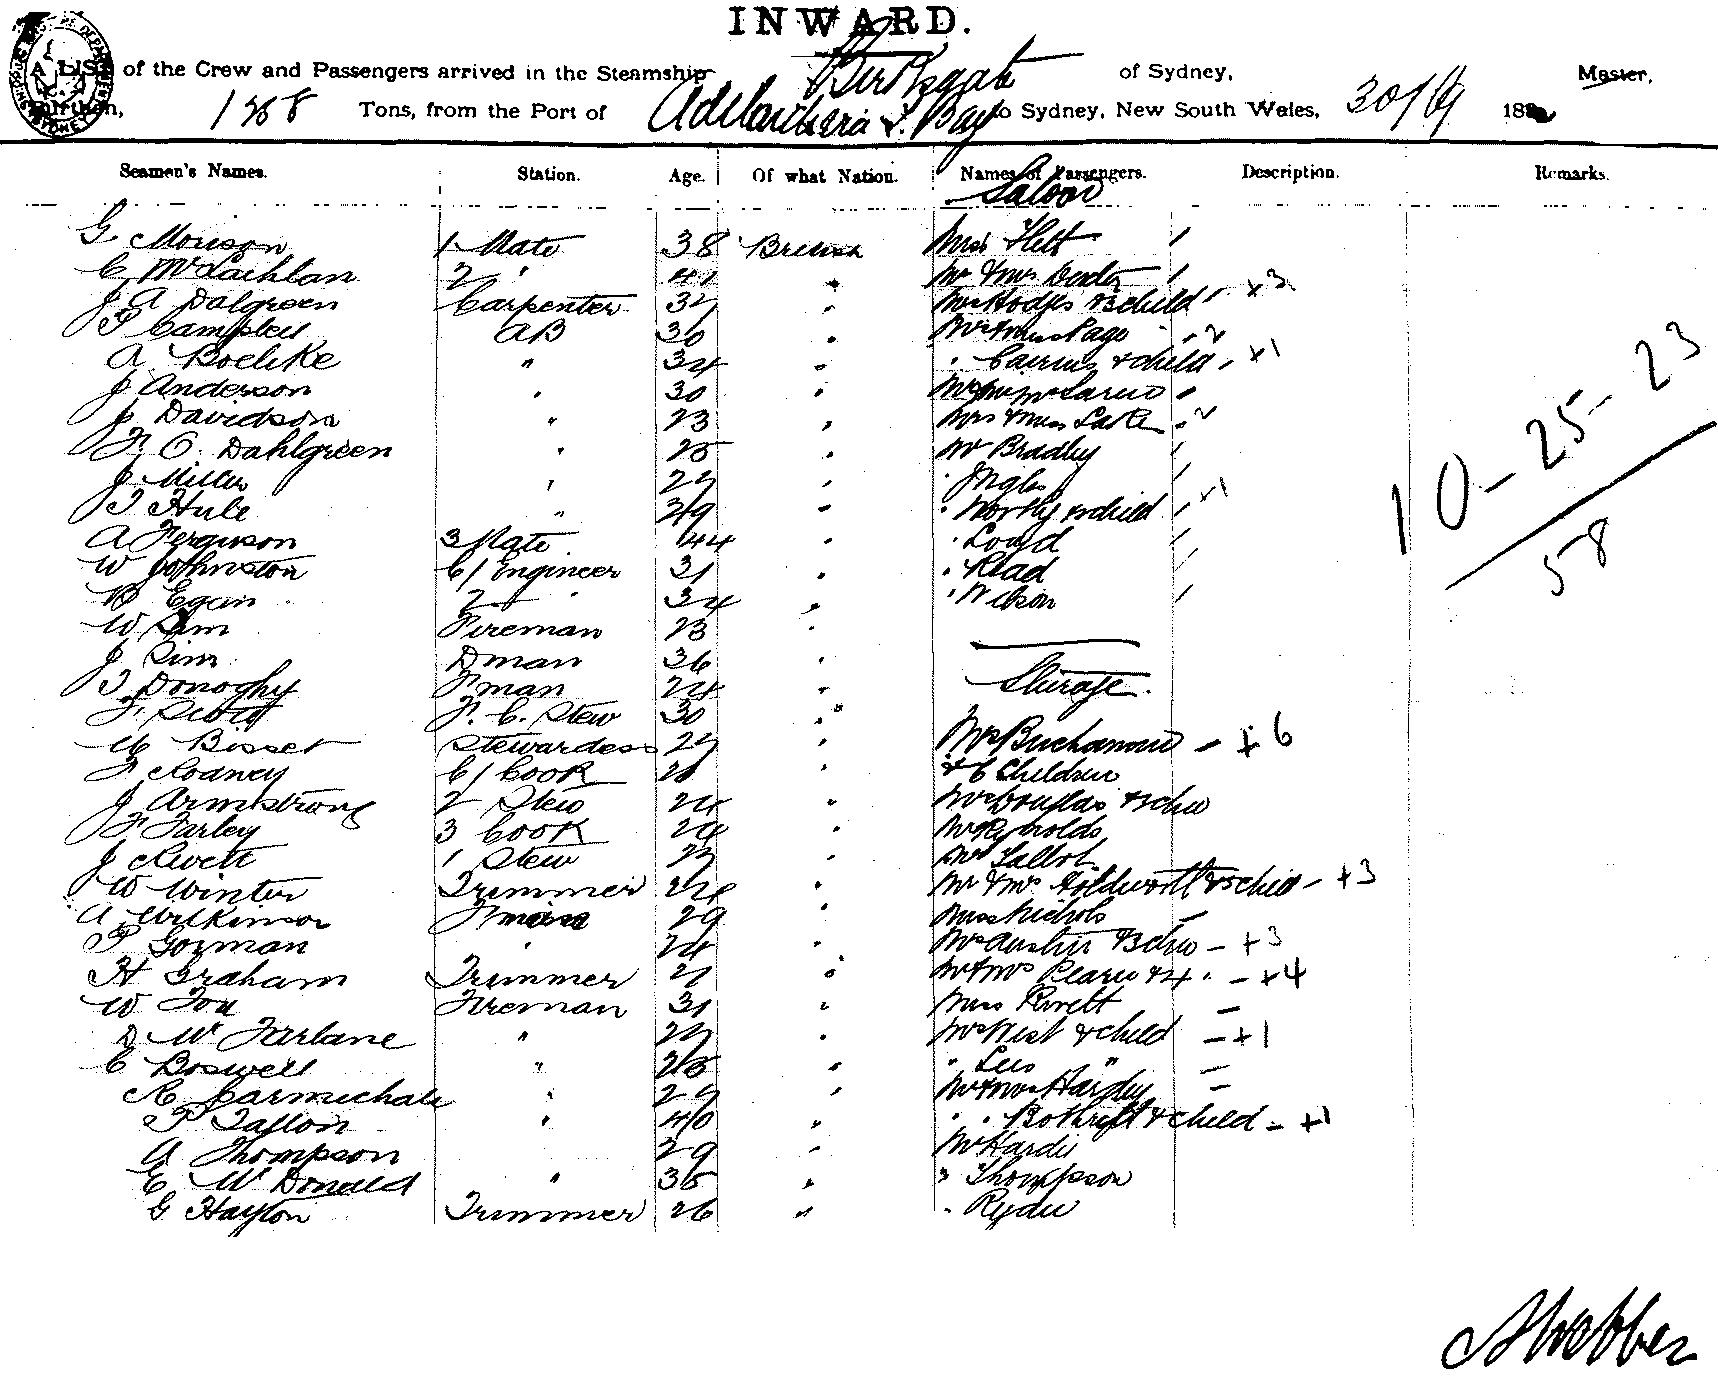 INWARD.
A LIST of the Crew and Passengers arrived in the Steamship Birksgate of Sydney, Master,
Burthen, Tons, from the Port of Adelaide to Sydney, New South Wales, 30/6/ 188
Seamen's Names. Station. Age. Of what Nation. Names of Passengers. Description. Remarks.
Saloon
G Morison 1 Mate 38 British Miss Flett
C McLachlan 2 " 41 " Mr & Mrs Dexter +3
J A Dalgreen Carpenter " Mrs Hodges & 3 child
P Campbell AB 30 " Mr & Miss Page 2
A Boehke " 34 " " Cairns & child +1
J Anderson " 30 " Mr McLaren
J Davidson " 23 " Mrs & Miss Lake 2
F O Dahlgreen " 25 " Mr Bradley
J Miller " 27 " " Ingles
T Hule " 39 " " Worthy & child +1
A Ferguson 3 Mate 44 " " Loyd
W Johnston C/ Engineer 31 " " Read
Egan 2 " 34 " " Wilson
W Sim Fireman 23 "
J Sim Dman 36 "
T Donoghy Fman 24 " Steerage.
F. Scott F. C. Stew 30 "
M Bisset Stewardess 27 " Mrs Buchanan - +6
F Rodney C/ Cook " & 6 Children
J Armstrong 2 Stew 24 " Mrs Douglas
F Farley 3 Cook 24 " Mr Reynolds
J Rivett 1 Stew " Mr Talbot
W Winter Trimmer 24 " Mr & Mrs Holdworth & 3 chid - +3
A Wilkinson Fman 29 " Miss Nichols -
P Gorman " 24 " Mrs Austin & 3 chn - +3
H Graham Trimmer 21 " Mr & Mrs Pearce & 4 - +4
W Fox Fireman 31 " Miss Rivett -
D McFarlane " 27 " Mrs West & child - +1
C Boswell " 25 " " Lees " -
R Carmichale " 29 " Mr & Mrs Hardey -
P Taylor " 40 " " " Bothroyd & child - +1
A Thompson " 29 " Mr Hardie
E McDonald " 35 " " Thompson
G Hayton Trimmer 26 " " Ryder
10-25-23
58
A Webber